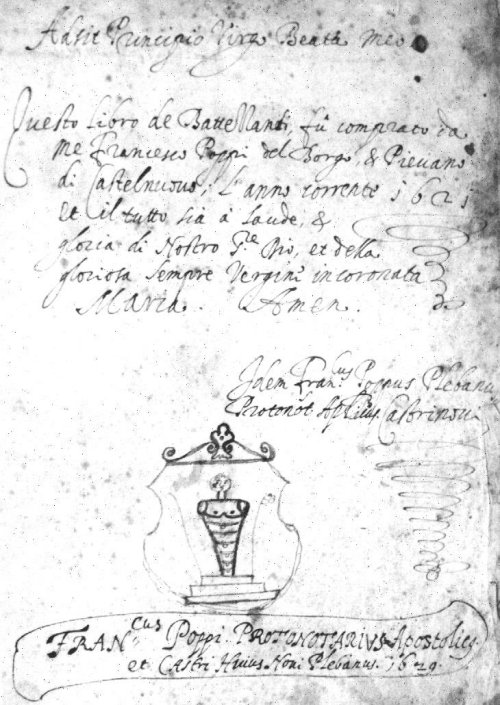 Adsit Principio Virgo Beata Meo
Questo libro de Battezzanti, fu comprato da
me Francesco Poppi del Borgo, & Pievano
di Castelnuovo, L'anno corrente 1621
et il tutto sia à laude, &
gloria di Nostro S.re Dio, et della
gloriosa sempre Vergine incoronata
Maria. Amen.
Idem Fran.cus Poppus Plebanus
Protonot Ap.licus Castrinovi
FRAN.cus Poppi. PROTONOTARIUS Apostolicus
et CAStri Huius Noni Plebanus. 1629.